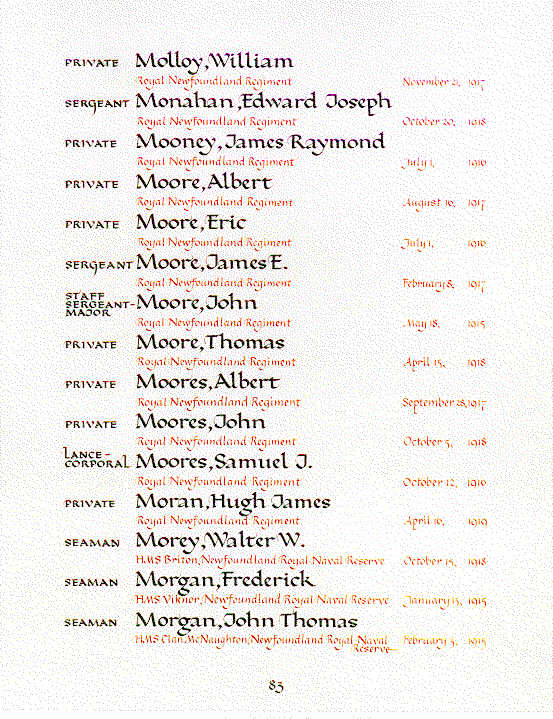 PRIVATE Molloy, William
Royal Newfoundland Regiment November 21, 1917
SERGEANT Monahan, Edward Joseph
Royal Newfoundland Regiment October 20, 1918
PRIVATE Mooney, James Raymond
Royal Newfoundland Regiment July 1, 1916
PRIVATE Moore, Albert
Royal Newfoundland Regiment August 16, 1917
PRIVATE Moore, Eric
Royal Newfoundland Regiment July 1, 1916
SERGEANT Moore, James E.
Royal Newfoundland Regiment February 8, 1917
STAFF
SERGEANT- Moore, John
MAJOR
Royal Newfoundland Regiment May 18, 1915
PRIVATE Moore, Thomas
Royal Newfoundland Regiment April 15, 1918
PRIVATE Moores, Albert
Royal Newfoundland Regiment September 28, 1917
PRIVATE Moores, John
Royal Newfoundland Regiment October 5, 1918
LANCE-
CORPORAL Moores, Samuel J.
Royal Newfoundland Regiment October 12, 1916
PRIVATE Moran, Hugh James
Royal Newfoundland Regiment April 16, 1919
SEAMAN Morey, Walter W.
H.M.S Briton, Newfoundland Royal Naval Reserve October 15, 1918
SEAMAN Morgan, Frederick
H.M.S Viknor, Newfoundland Royal Naval Reserve January 13, 1915
SEAMAN Morgan, John Thomas
H.M.S Clan McNaughton, Newfoundland Royal Naval February 3, 1915
Reserve
83